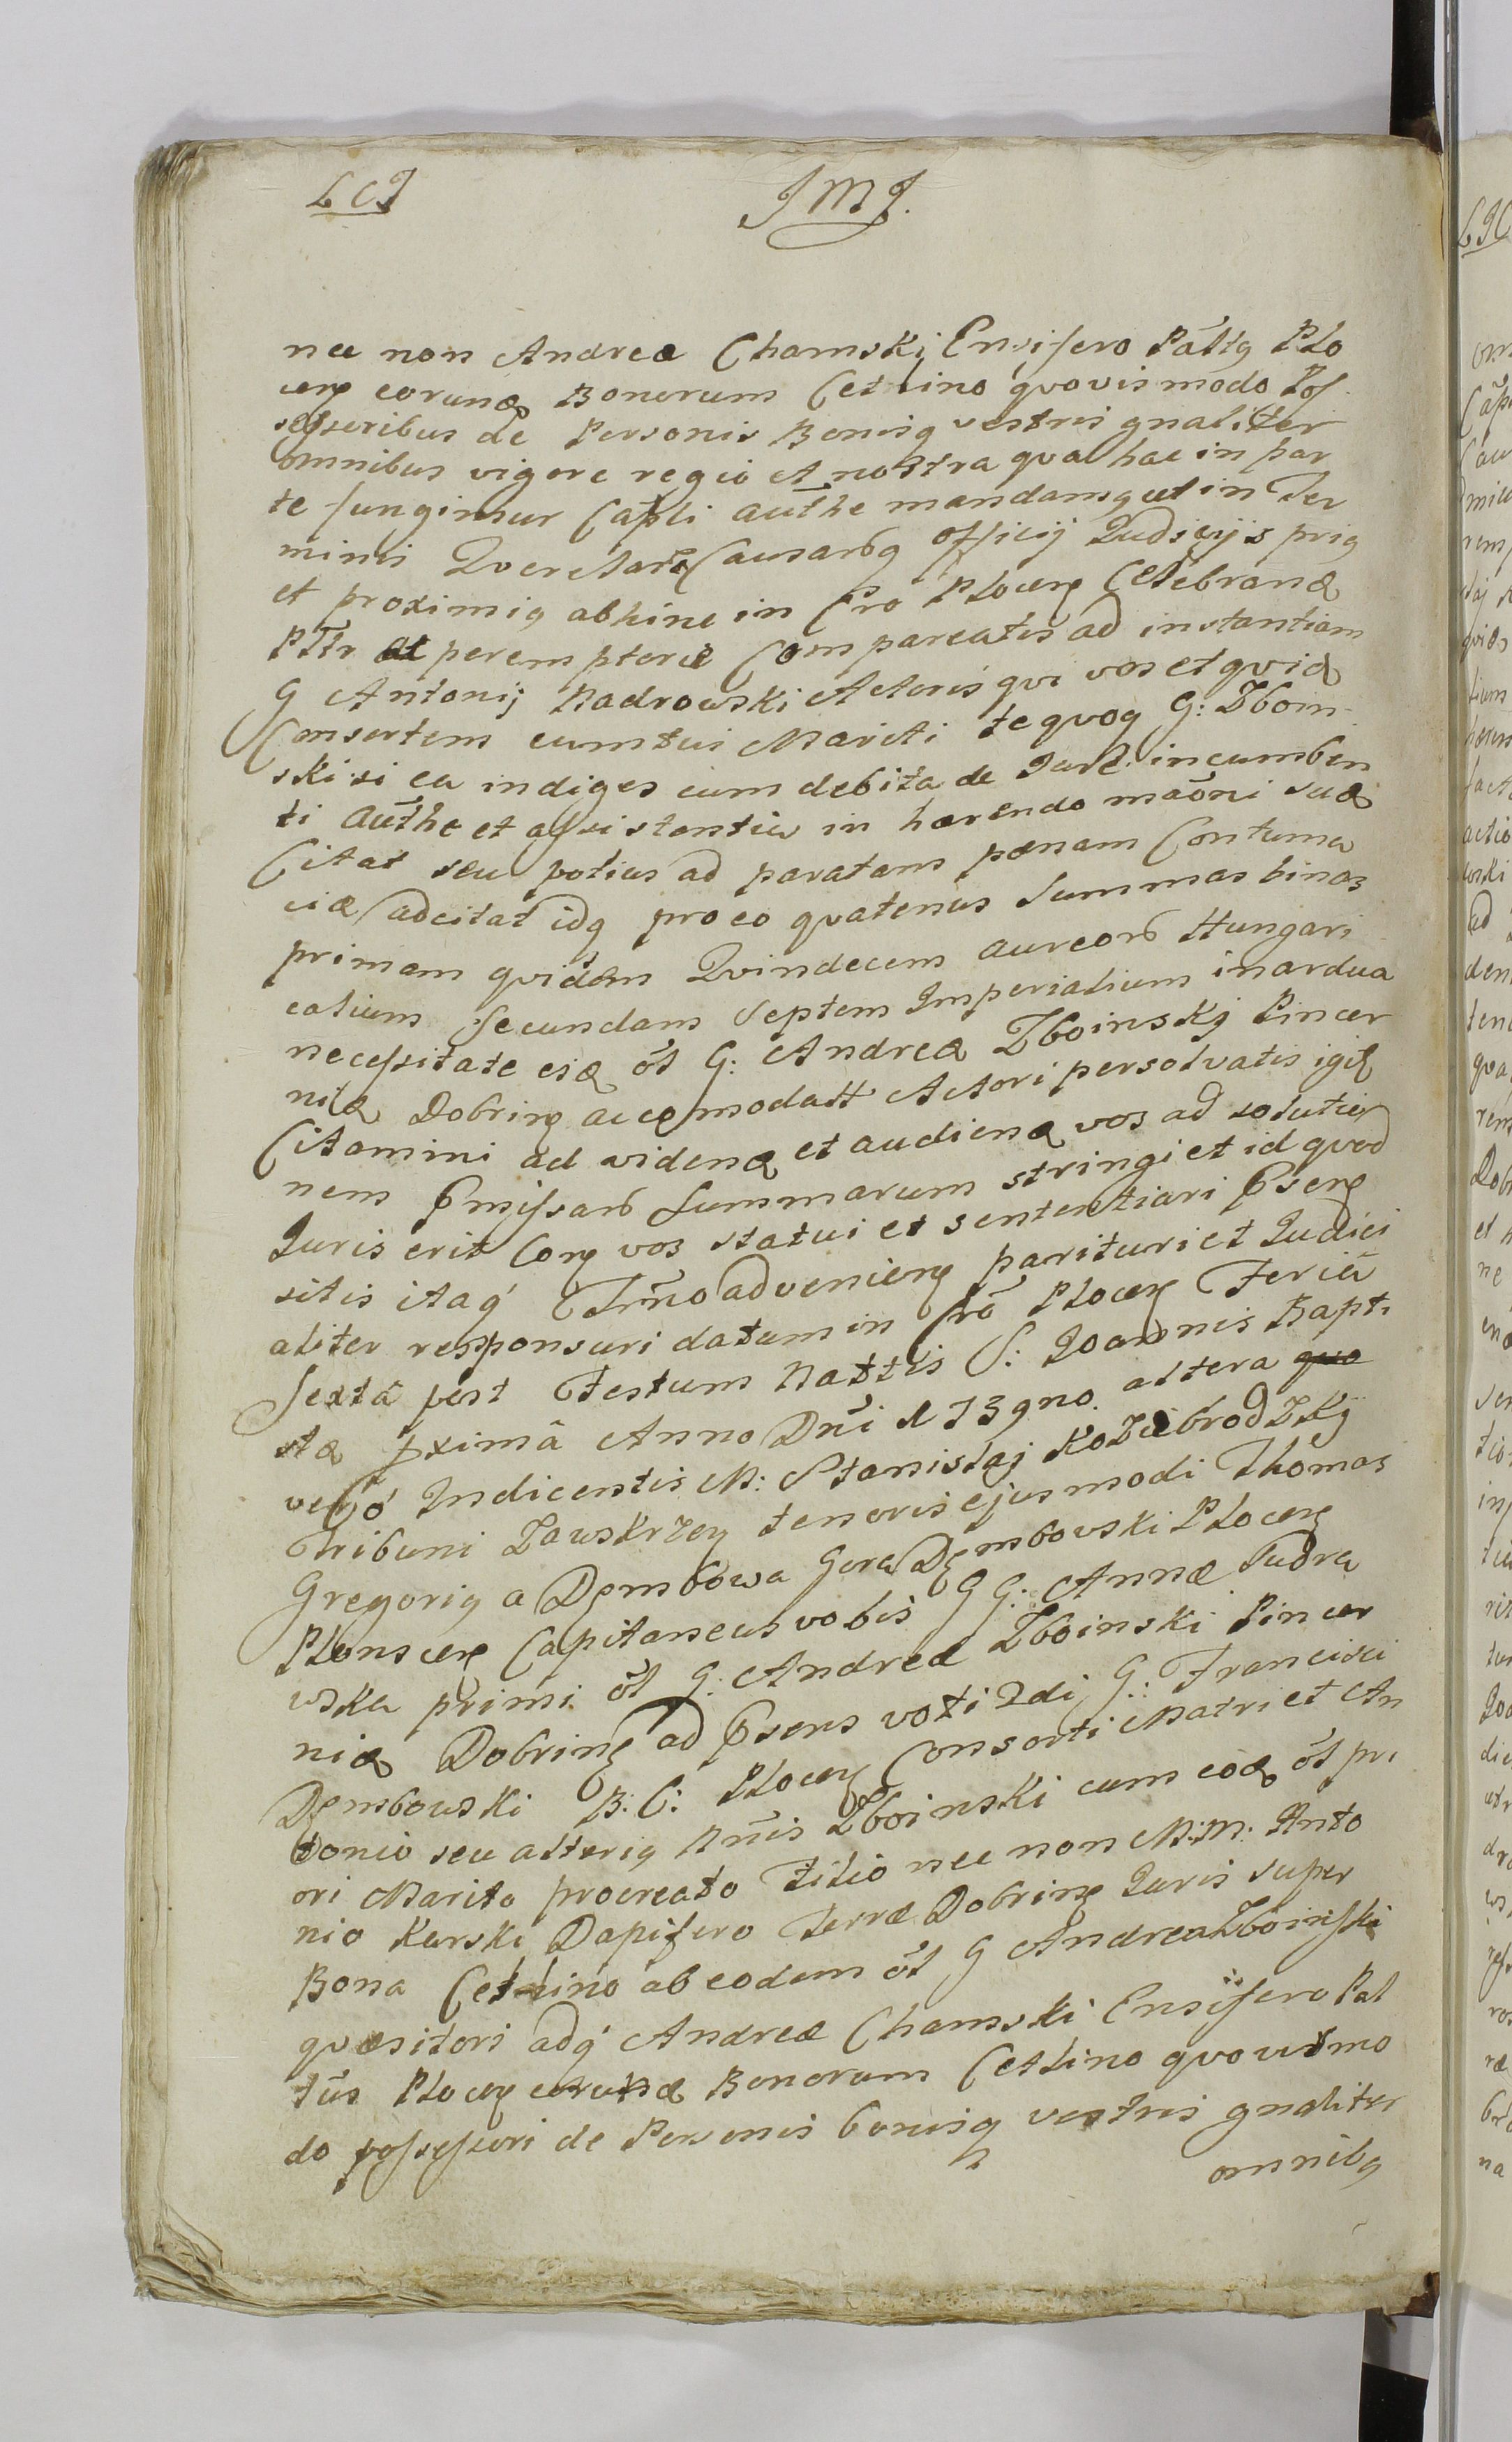 LCI
JMJ.
nec non Andreæ Chamski Ensifero Pāttq Plo
ceñ eorundē Bonorum Cetlino quovis modo Pos
sessoribus de Personis Bonisq vestris gnaliter
omnibus vigore regia et nostra qua hac in par
te fungimur Capli authe mandamq ut in Ter
minis Querelarū Causarūq officij Judicijs priq
et proximiq abhinc in Cro Plocen Celebrand
Pttr perempterie Compareatis ad instantiam
G Antonij Nadrowski Actoris qui vos et quid
Consortem cum tui Mariti te quoq G: Zboin
ski si ea indiges cum debita de Jure incumben
ti authe et assistentia in hærendo māoni suæ
Citat seu potius ad paratam pœnam Contuma
ciæ adcitat idq pro eo quatenus summas binas
primam quidem Quindecem aureorū Hungari
calium Secundam Septem Imperialium in ardua
necessitate eid ol G: Andreæ Zboinskj Pincer
nidæ Dobrinen accomodatt Actori persolvatis igitr
Citamini ad videnđ et audienđ vos ad solutio
nem Pmissarū Summarum stringi et id quod
Juris erit Cong vos statui et sententiari Pseng
sitis itaq Trno adveniente parituri et Judici
aliter responsuri datum in Cro Plocen Feriā
Sextâ post Festum Nattis S: Joannis Bapti
stæ pximâ Anno Dni 1739no. altera
verò Indicentis M: Stanislaj Koziebrodzkj
Tribuni Zawskrzen tenoris ejusmodi Thomas
Gregoriq a Dembowa Gora Dembowski Plocen
Plonscen Capitaneus vobis GG: Annæ Sudra
wska primi ol G: Andreæ Zboinski Pincer
nid Dobrinen ad Psens voti 2di G: Francisci
Dembowski B: C: Plocen Consorti Matri et An
tonio seu alteriq Nnis Zboinski cum eod ol pri
ori Marito procreato Filio nec non M:M: Anto
nio Karski Dapifero Terræ Dobrinen Juris super
Bona Cetlino ab eodem ol G Andrea Zboinski
quæsitori adq Andreæ Chamski Ensifero Pal
tūs Plocen eorund Bonorum Cetlino quovis mo
do possessori de Personis bonisq vestris gnaliter
omnibq